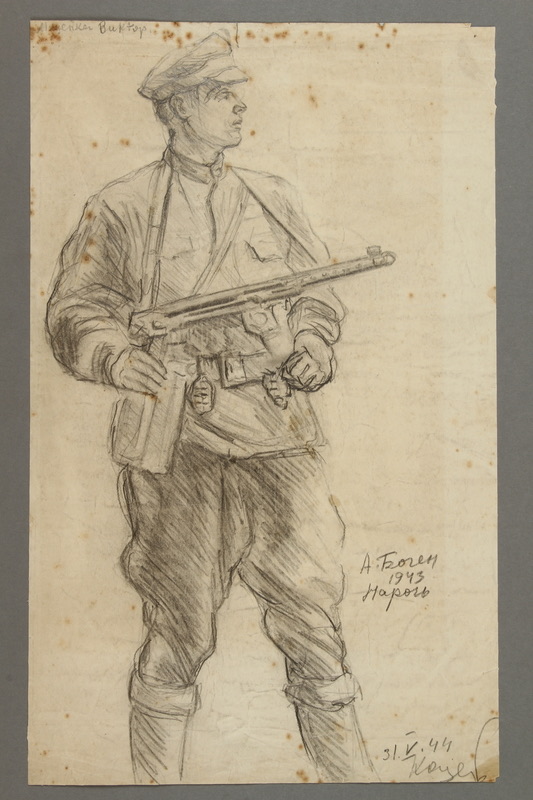 Виктор.
А. Боген
1943
Нарочь
31.V.44